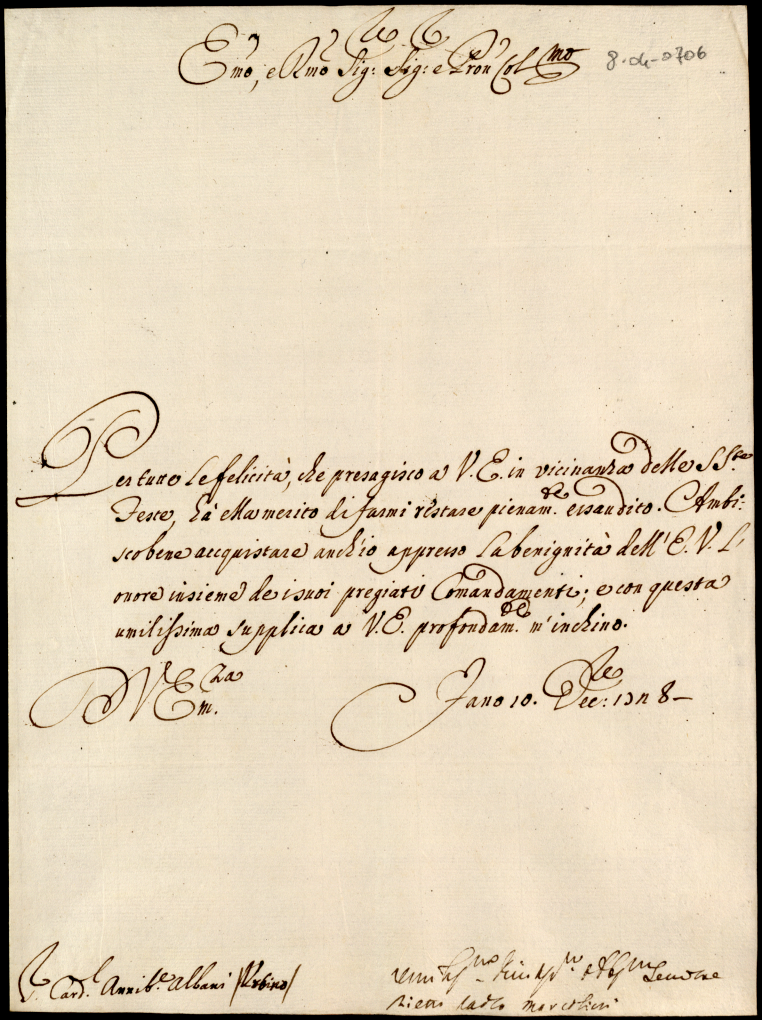 Emo, e Rmo Sig: Sig: e Pron Colmo
8-04-0706
Per tutte le felicità, che presagisco a V. E. in vicinanza delle SSte
Feste, hà ella merito di farmi restare pienamte esaudito. Ambi:
sco bene acquistare anchio appresso la benignità dell' E. V. L'
onore insieme de i suoi pregiati Comandamenti; e con questa
umilissima supplica a V. E. profondamte m'inchino.
D V Emza
Fano 10. Decre: 1728
S. Cardl Annible Albani /Urbino/
Servore
Pier Paolo Marcolini